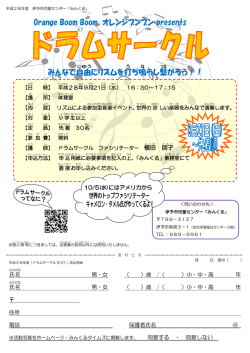 平成28年度　伊予市児童センター「みんくる」
Orange Boom Boom, オレンジブンブン presents
ドラムサークル
みんなで自由にリズムを打ち鳴らし繋がろう！！
【日　　程】　平成２８年９月２１日（水）　１６：３０～１７：１５
【場　　所】　体育室
【内　　容】　リズムによる参加型音楽イベント。世界の珍しい楽器をみんなで演奏します。
【対　　象】　小学生以上
【定　　員】　先着　３０名
【参 加 費】　無料
【講　　師】　ドラムサークル　ファシリテーター　楠田　順子
【申込方法】　申込用紙に必要事項を記入の上、「みんくる」事務室にて
直接お申し込みください。
ドラムサークル
ってなに？
10/5(水)にはアメリカから
世界のトップファシリテーター
キャメロン・タメル氏がやってくるよ！
＜問い合わせ先＞
伊予市児童センター「みんくる」
〒７９９－３１２７
伊予市尾崎３－１（総合保健福祉センター３階）
ＴＥＬ：９８９－９９６１
き り と り
平成２８年度「ドラムサークル 9/21」申込用紙
氏名　男・女　（　　）歳　／（　　）小・中・高　　年
氏名　男・女　（　　）歳　／（　　）小・中・高　　年
〒
住所
電話　保護者氏名　㊞
※活動写真をホームページ・みんくるタイムズに掲載します。　同意する　・　同意しない